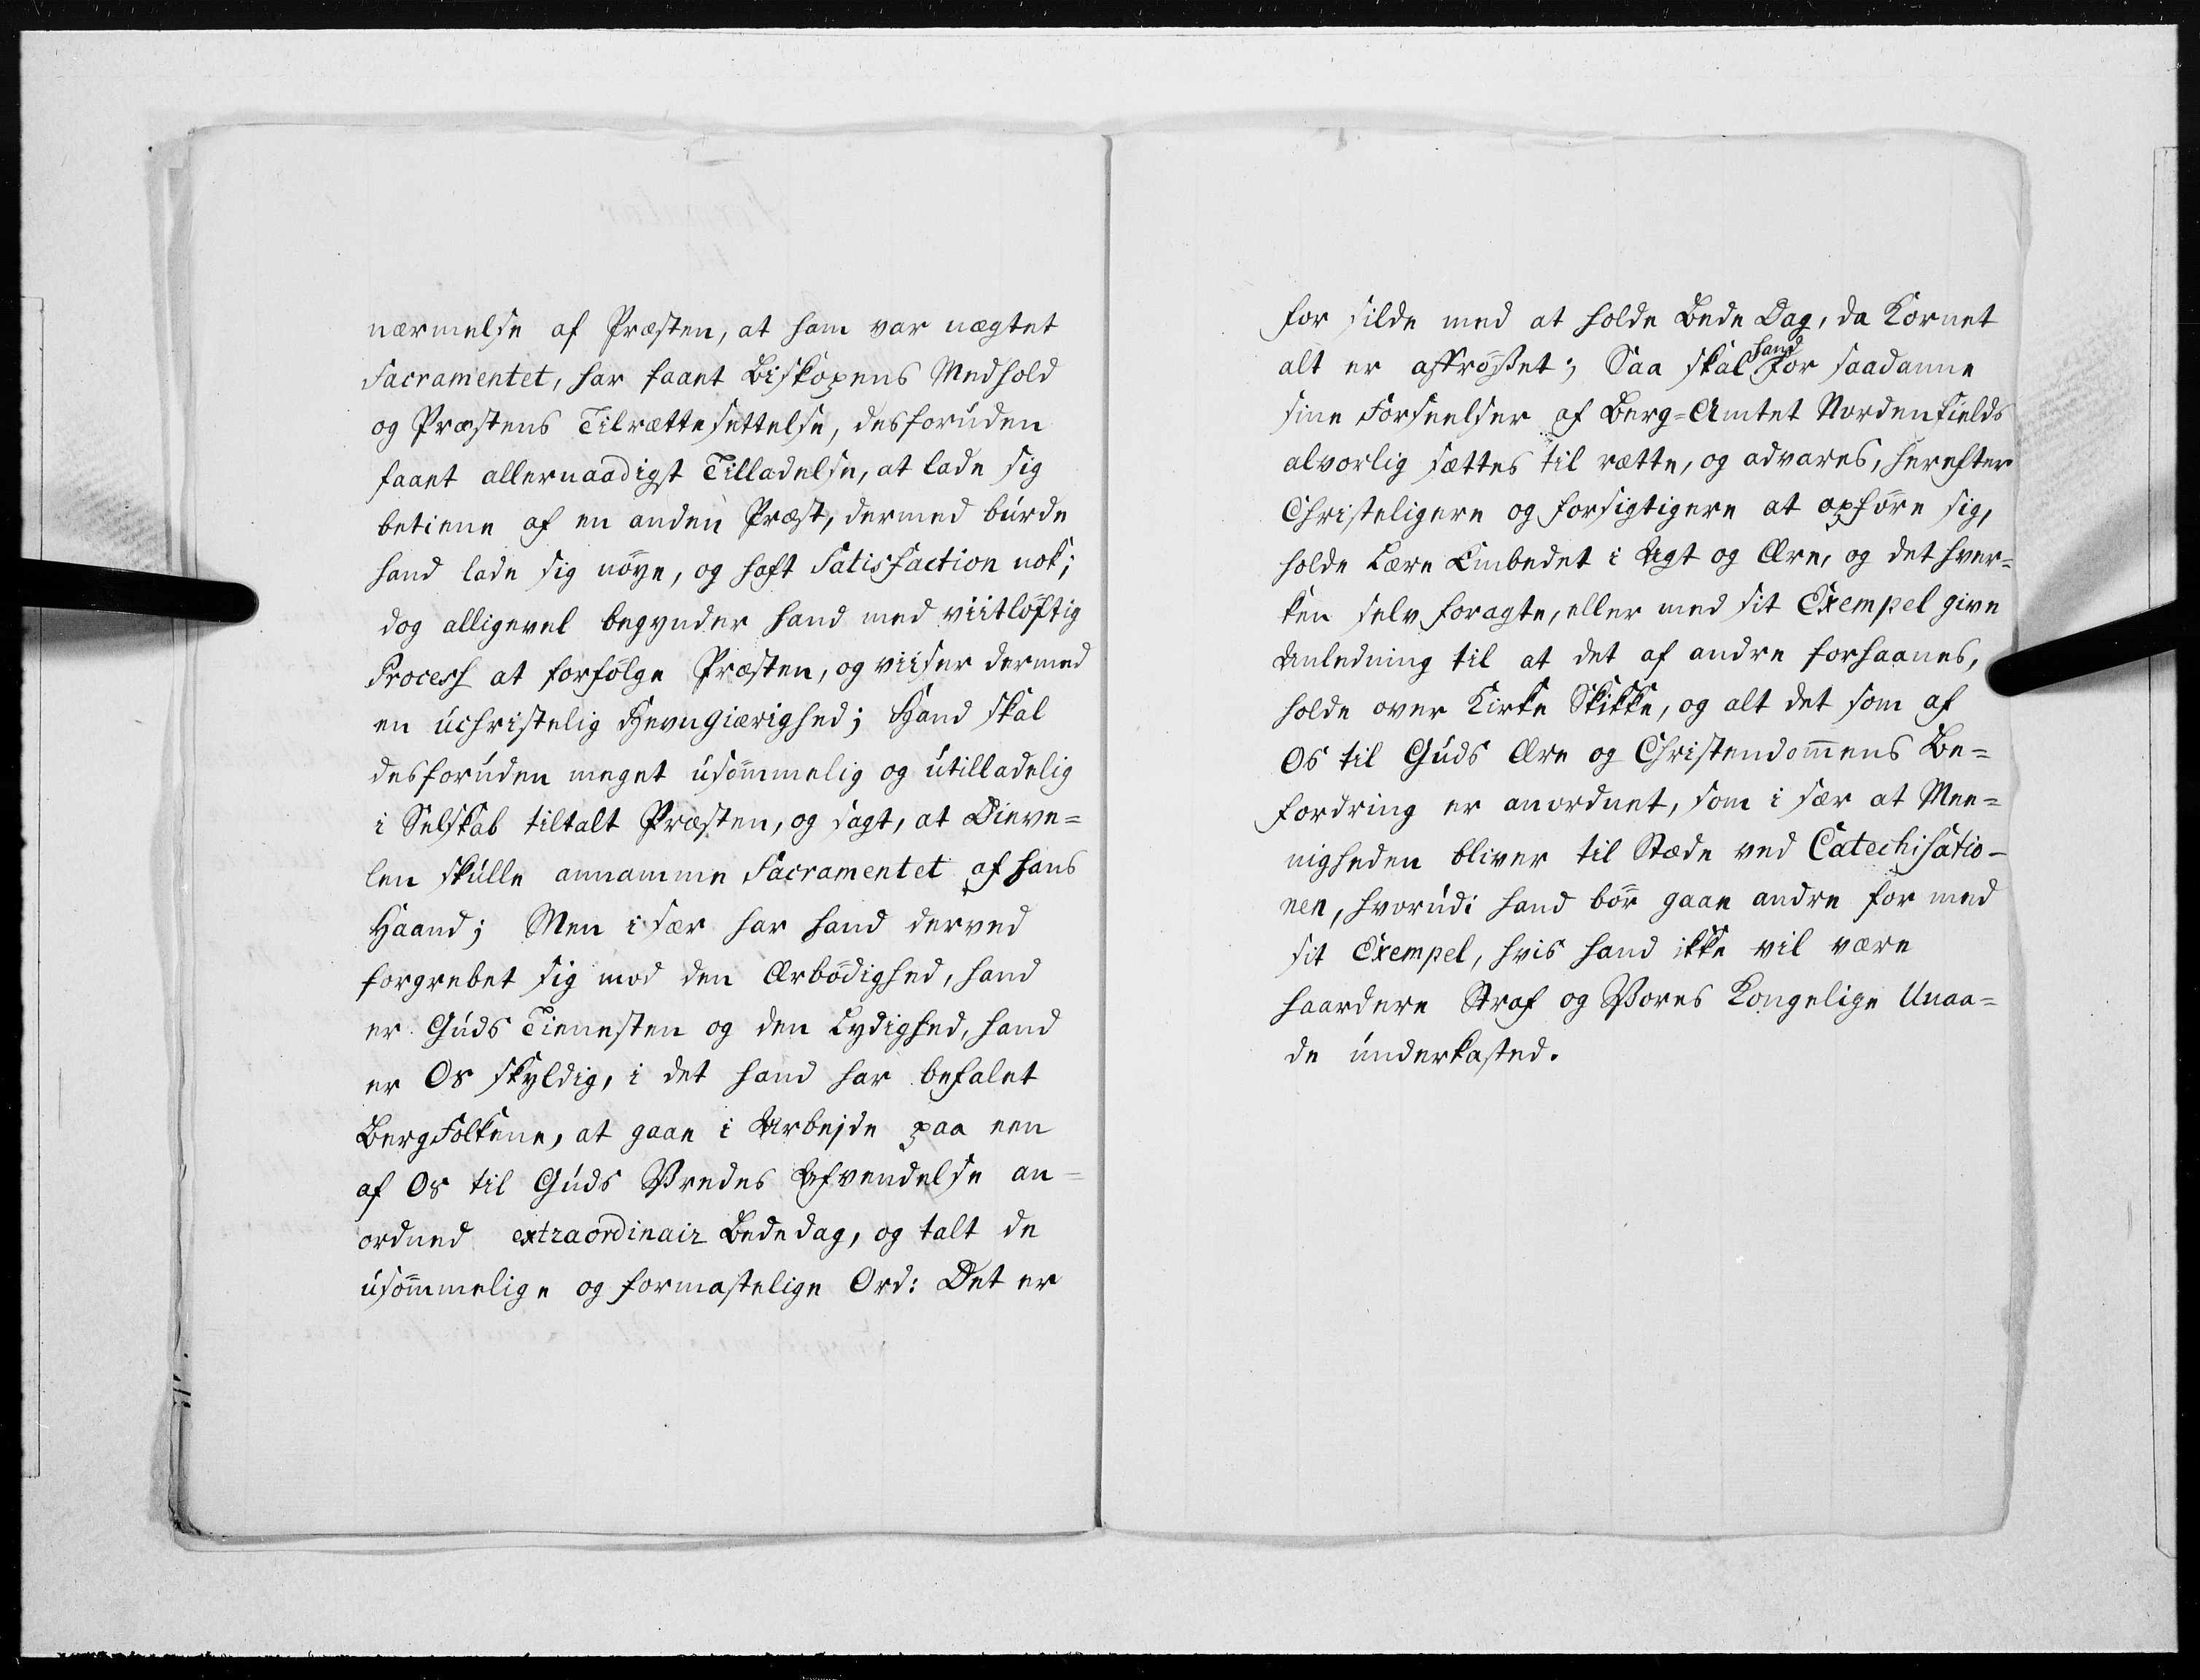 nærmelse af Præsten, at ham var nægtet
Sacramentet, har faaet Biskopens Medhold
og Præstens Tilrættesettelse, desforuden
faaet allernaadigst Tilladelse, at lade sig
betiene af en anden Præst, dermed burde
hand lade sig nöye, og haft Satisfaction nok;
dog alligevel begynder hand med viitlöftig
Process at forfölge Præsten, og viiser dermed
en uchristelig Hevngiærighed; Hand skal
desforuden meget usömmelig og utilladelig
i Selskab tiltalt Præsten, og sagt, at Dieve=
len skulle annamme Sacramentet af hans
Haand; Men i sær har hand derved
forgrebet sig mod den Ærbödighed, hand
er Guds Tienesten og den Lydighed, hand
er Os skyldig, i det hand har befalet
BergFolkene, at gaae i Arbejde paa een
af Os til Guds Vredes Afvendelse an=
ordned extraordinair Bededag, og talt de
usömmelige og formastelige Ord: Det er
for silde med at holde Bede Dag, da Kornet
alt er affrosset; Saa skal hand for saadanne
sine Forseelser af Berg=Amtet Nordenfields
alvorlig sættes til rætte, og advares, herefter
Christeligere og forsigtigere at opföre sig,
holde Lære Embedet i Agt og Ære, og det hver=
ken selv foragte, eller med sit Exempel give
Anledning til at det af andre forhaanes,
holde over Kirke Skikke, og alt det som af
Os til Guds Ære og Christendommens Be=
fordring er anordnet, som i sær at Mee=
nigheden bliver til Stæde ved Catechisatio-
nen, hvorudi hand bör gaae andre for med
sit Exempel, hvis hand ikke vil være
haardere Straf og Vores Kongelige Unaa=
de underkasted.